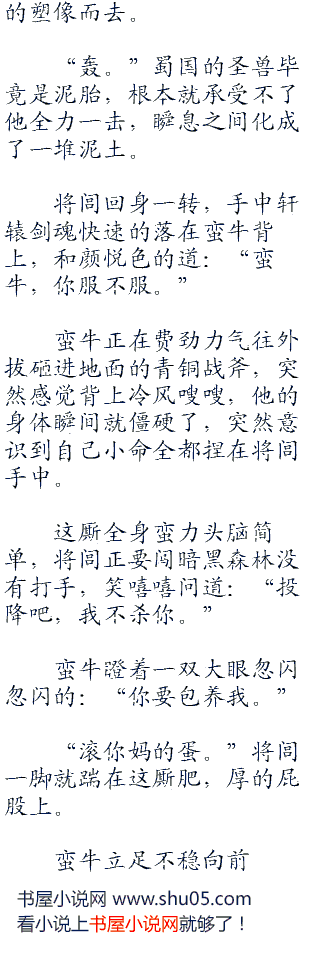 的塑像而去。
“轰。”蜀国的圣兽毕
竟是泥胎，根本就承受不了
他全力一击，瞬息之间化成
了一堆泥土。
将闾回身一转，手中轩
辕剑魂快速的落在蛮牛背
上，和颜悦色的道：“蛮
牛，你服不服。”
蛮牛正在费劲力气往外
拔砸进地面的青铜战斧，突
然感觉背上冷风嗖嗖，他的
身体瞬间就僵硬了，突然意
识到自己小命全都捏在将闾
手中。
这厮全身蛮力头脑简
单，将闾正要闯暗黑森林没
有打手，笑嘻嘻问道：“投
降吧，我不杀你。”
蛮牛瞪着一双大眼忽闪
忽闪的：“你要包养我。”
“滚你妈的蛋。”将闾
一脚就踹在这厮肥，厚的屁
股上。
蛮牛立足不稳向前
书屋小说网 www.shu05.com
看小说上书屋小说网就够了！